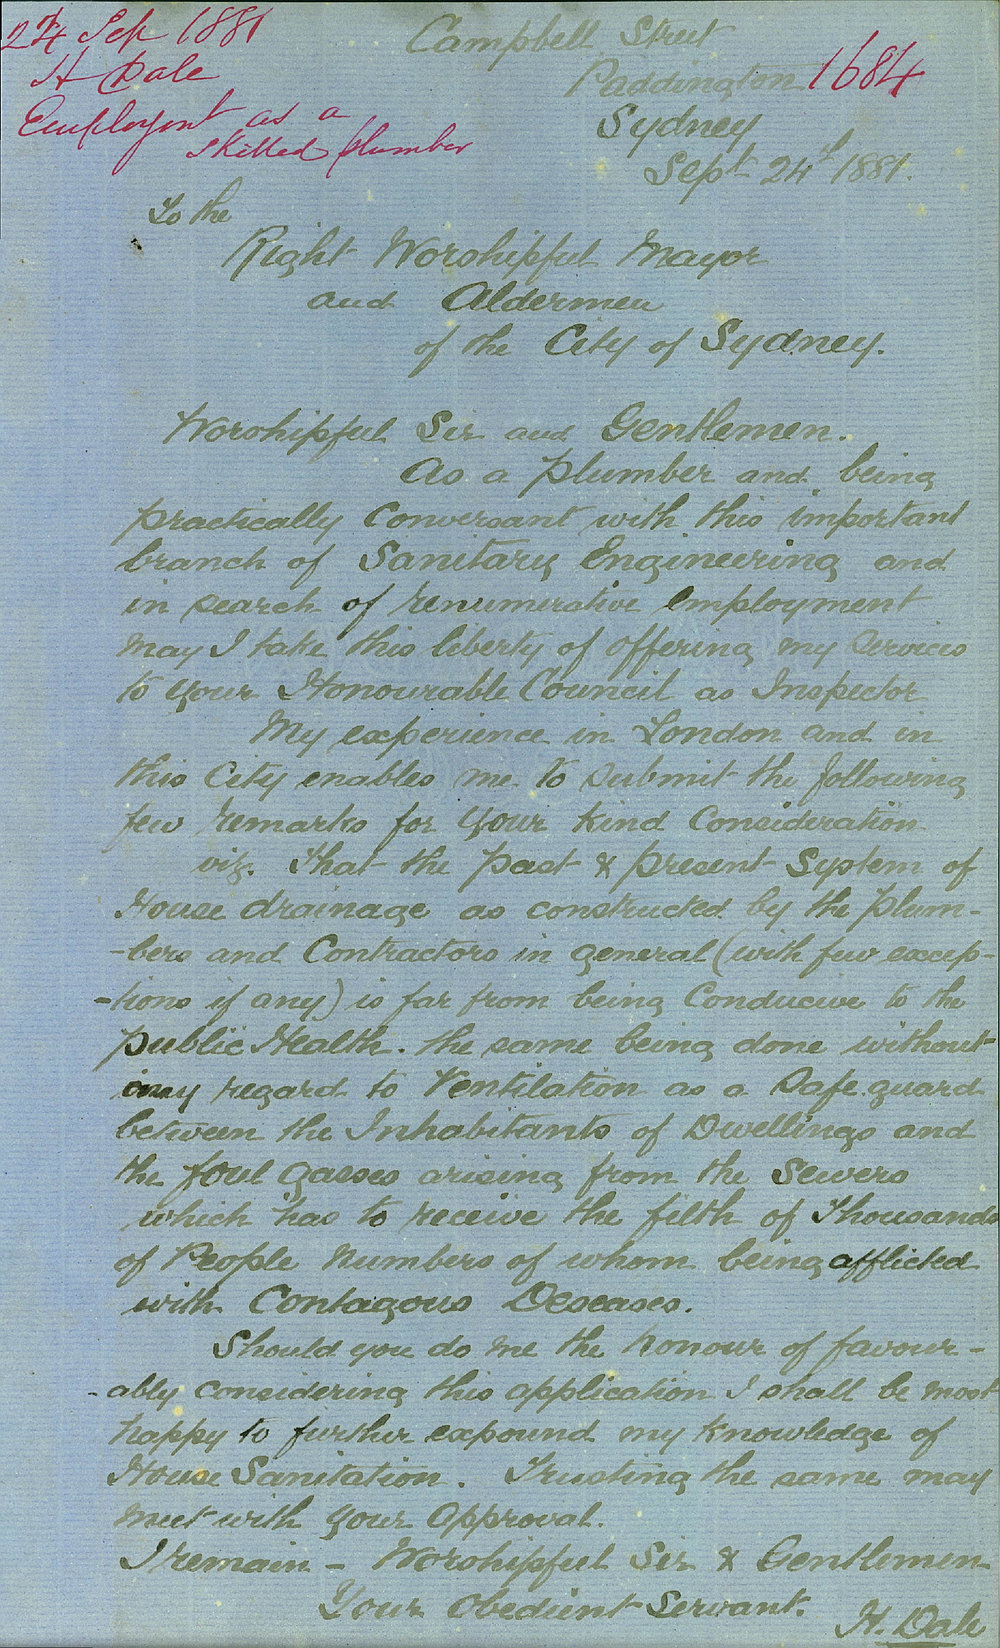 24 Sep 1881
H Dale
Employont as a
skilled plumber
1684
Campbell Street
Paddington
Sydney
Sept 24th 1881.
To the
Right Worshipful Mayor
and Aldermen
of the City of Sydney.
Worshipful Sir and Gentlemen.
As a plumber and being
practically conversant with this important
branch of Sanitary Engineering and
in search of renumerative employment
may I take this liberty of offering my services
to your Honourable Council as Inspector
My experience in London and in
this City enables me to submit the following
few remarks for your kind consideration
viz. That the past & present System of
House drainage as constructed by the plum-
-bers and Contractors in general (with few excep-
-tions if any) is far from being conducive to the
public Health. the same being done without
any regard to Ventilation as a Safe guard
between the Inhabitants of Dwellings and
the foul gasses arising from the Sewers
which has to receive the filth of Thousands
of People numbers of whom being afflicted
with Contagous Deseases.
Should you do me the honour of favour-
-ably considering this application I shall be most
happy to further expound my knowledge of
House Sanitation. Trusting the same may
meet with your approval.
I remain - Worshipful Sir & Gentlemen
Your obedient Servant.
H. Dale